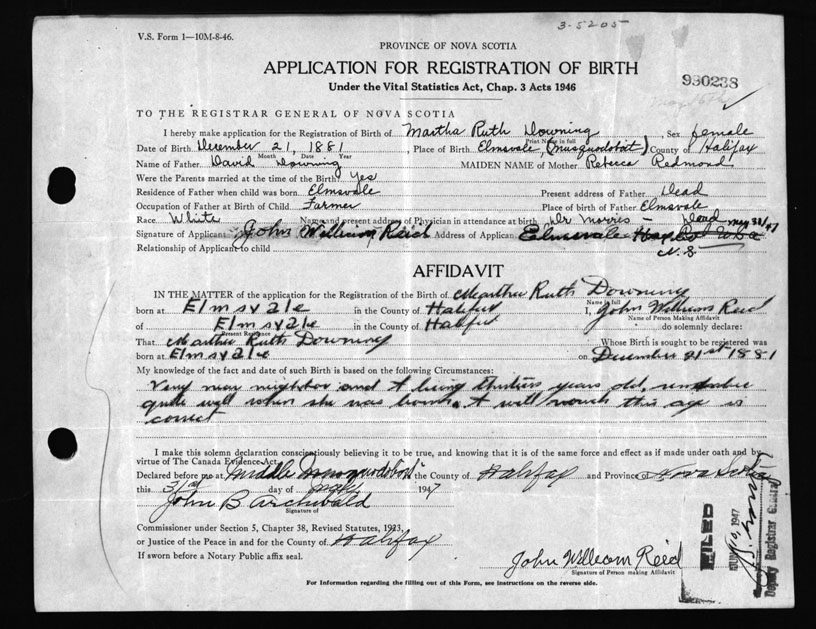 3-5205
V.S. Form 1—10M-8-46.
PROVINCE OF NOVA SCOTIA
APPLICATION FOR REGISTRATION OF BIRTH
930238
Under the Vital Statistics Act, Chap. 3 Acts 1946
TO THE REGISTRAR GENERAL OF NOVA SCOTIA
I hereby make application for the Registration of Birth of Martha Ruth Downing, Sex female
Print Name in full
Date of Birth December 21, 1881, Place of Birth Elmsvale, (Musquodobit) County of Halifax
Month Date Year
Name of Father David Downing MAIDEN NAME of Mother Rebecca Redmond
Were the Parents married at time of the Birth? Yes
Residence of Father when child was born Elmsvale Present address of Father Dead
Occupation of Father at Birth of Child Farmer Place of birth of Father Elmsvale
Race White Name and present address of Physician in attendance at birth Dr Morris - Dead May 31/47
Signature of Applicant John William Reid Address of Applicant Elmsvale
N.S.
Relationship of Applicant to child
AFFIDAVIT
IN THE MATTER of the application for the Registration of the Birth of Marthe Ruth Downing
Name in full
born at Elmsvale in the County of Halifax I, John William Reid
Name of Person Making Affidavit
of Elmsvale in the County of Halifax do solemnly declare:
Present Residence
That Marthe Ruth Downing Whose Birth is sought to be registered was
born at Elmsvale on December 21st 1881
My knowledge of the fact and date of such Birth is based on the following Circumstances:
Very near neighbor and I being thirteen years old, remember
quite well when she was born. I will vouch this age is
correct
I make this solemn declaration conscientiously believing it to be true, and knowing that it is of the same force and effect as if made under oath and by
virtue of The Canada Evidence Act.
Declared before me at Middle Musquodoboit the County of Halifax and Province of Nova Scotia
this 31st day of May 1947
John B Archibald
Signature of
Commissioner under Section 5, Chapter 38, Revised Statutes, 1923,
or Justice of the Peace in and for the County of Halifax
If sworn before a Notary Public affix seal.
John William Reid
Signature of Person making Affidavit
For Information regarding the filling out of this Form, see instructions on the reverse side.
FILED
1947
Deputy Registrar General